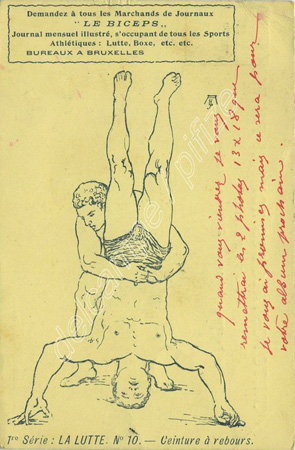 Demandez à tous les Marchands de Journaux
"LE BICEPS"
Journal mensuel illustré, s'occupant de tous les Sports
Athlétiques : Lutte, Boxe, etc. etc.
BUREAUX A BRUXELLES
quand vous viendrez je vous
remettrai les 2 photos 13 x 18 que
je vous ai promises mais ce sera pour
votre album prochain.
1re Série : LA LUTTE. No 10. — Ceinture à rebours.